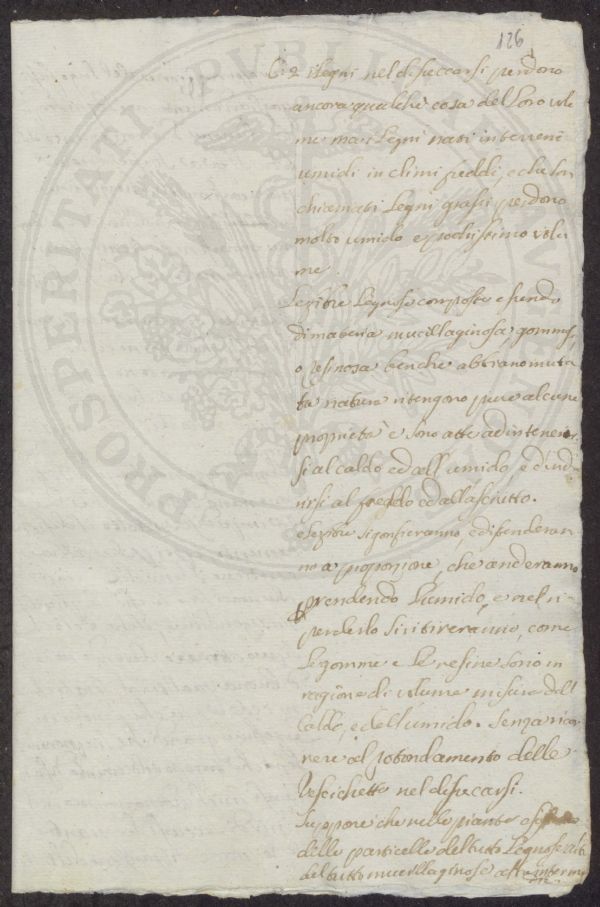 126
i legni nel disseccarsi perdono
ancora qualche cosa del loro volu
me ma i Legni nati in terreni
umidi in climi freddi, e che son
chiamati Legni grassi perdono
molto umido e pochissimo volu
me.
Le fibre Legnose composte essendo
di materia mucillaginosa gommos,
o resinosa benche abbiano muta
ta natura ritengono pure alcune
proprietà e sono atte ad intenerir
si al caldo ed all'umido, e d'ind
urirsi al freddo ed all'asciutto.
e si gonfieranno, e distenderan
no a proporzione, che anderanno
prendendo l'umido, e nel ri
perderlo si ritireranno, come
le gomme e le resine sono in
ragione di volume misura del
caldo, e dell'umido. Senza ricor
rere al rotondamento delle
Vescichette nel disecarsi.
Suppone che nelle piante
delle particelle del tutto Legnose
del tutto mucillaginose
PROSPERITATI PUBLICAE AUGENDAE